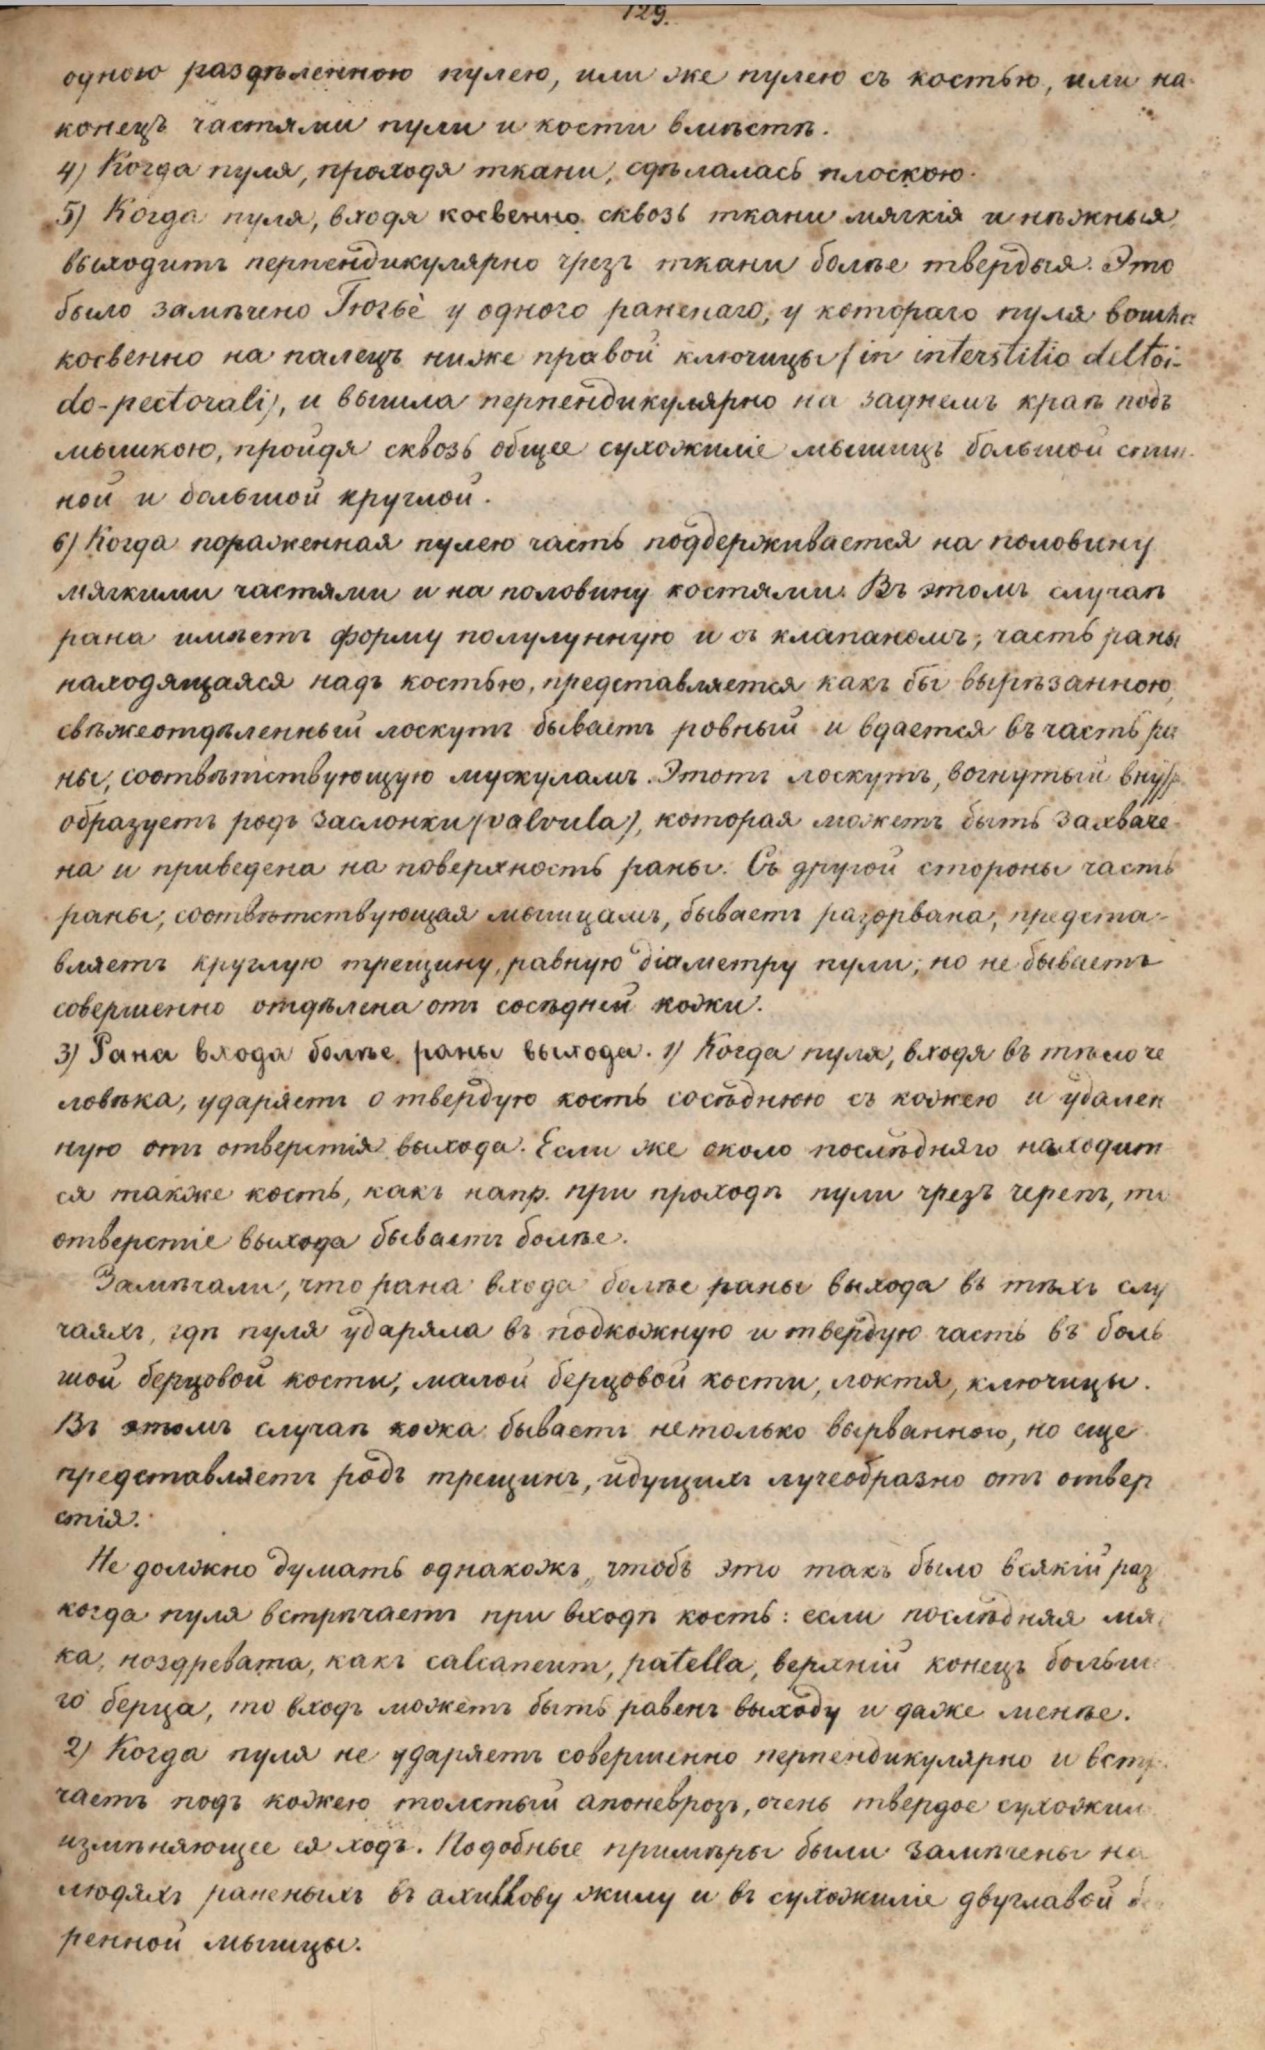 129.
одною раздѣленною пулею, или же пулею съ костью, или на-
конецъ частями пули и кости вмѣстѣ.
4) Когда пуля, проходя ткани, сдѣлалась плоскою.
5) Когда пуля, входя косвенно сквозь ткани мягкія и нѣжныя,
выходитъ перпендикулярно чрезъ ткани болѣе твердыя. Это
было замѣчено Гюгье у одного раненаго, у котораго пуля вошла
косвенно на палецъ ниже правой ключицы (in interstitio deltoi-
do-pectorali), и вышла перпендикулярно на заднемъ краѣ подъ
мышкою, пройдя сквозь общее сухожиліе мышицъ большой спин-
ной и большой круглой.
6) Когда пораженная пулею часть поддерживается на половину
мягкими частями и на половину костями. Въ этомъ случаѣ
рана имѣетъ форму полулунную и съ клапаномъ; часть раны
находящаяся надъ костью, представляется какъ бы вырѣзанною,
свѣжеотдѣленный лоскутъ бываетъ ровный и вдается въ часть ра
ны, соотвѣтствующую мускуламъ. Этотъ лоскутъ, вогнутый внутр
образуетъ родъ заслонки (valvula), которая можетъ быть захваче-
на и приведена на поверхность раны. Съ другой стороны часть
раны, соотвѣтствующая мышцамъ, бываетъ разорвана, предста-
вляетъ круглую трещину, равную діаметру пули; но не бываетъ
совершенно отдѣлена отъ сосѣдней кожи.
3) Рана входа болѣе раны выхода. 1) Когда пуля, входя въ тѣло че
ловѣка, ударяетъ о твердую кость сосѣднюю съ кожею и удален
ную отъ отверстія выхода. Если же около послѣдняго находит
ся также кость, какъ напр. при проходѣ пули чрезъ черепъ, то
отверстіе выхода бываетъ болѣе.
Замѣчали, что рана входа болѣе раны выхода въ тѣхъ слу
чаяхъ, гдѣ пуля ударяла въ подкожную и твердую часть въ боль
шой берцовой кости, малой берцовой кости, локтя, ключицы.
Въ этомъ случаѣ кожа бываетъ нетолько вырванною, но еще
представляетъ родъ трещинъ, идущихъ лучеобразно отъ отвер
стія.
Не должно думать однакожъ, чтобъ это такъ было всякій раз
когда пуля встрѣчаетъ при входѣ кость: если послѣдняя мя
ка, ноздревата, какъ calcaneum, patella, верхній конецъ больша
го берца, то входъ можетъ быть равенъ выходу и даже менѣе.
2) Когда пуля не ударяетъ совершенно перпендикулярно и встрѣ
чаетъ подъ кожею толстый апоневрозъ, очень твердое сухожил
измѣняющее ея ходъ. Подобные примѣры были замѣчены на
людяхъ раненыхъ въ ахиллову жилу и въ сухожиліе двуглавой бе
ренной мышцы.